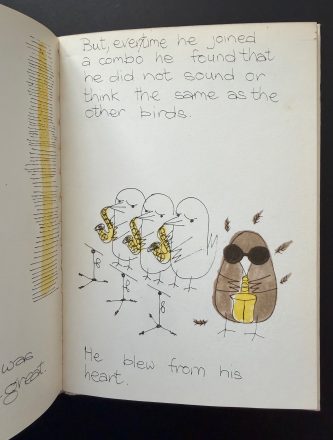 was
great.
But, everytime he joined
a combo he found that
he did not sound or
think the same as the
other birds.
He blew from his
heart.